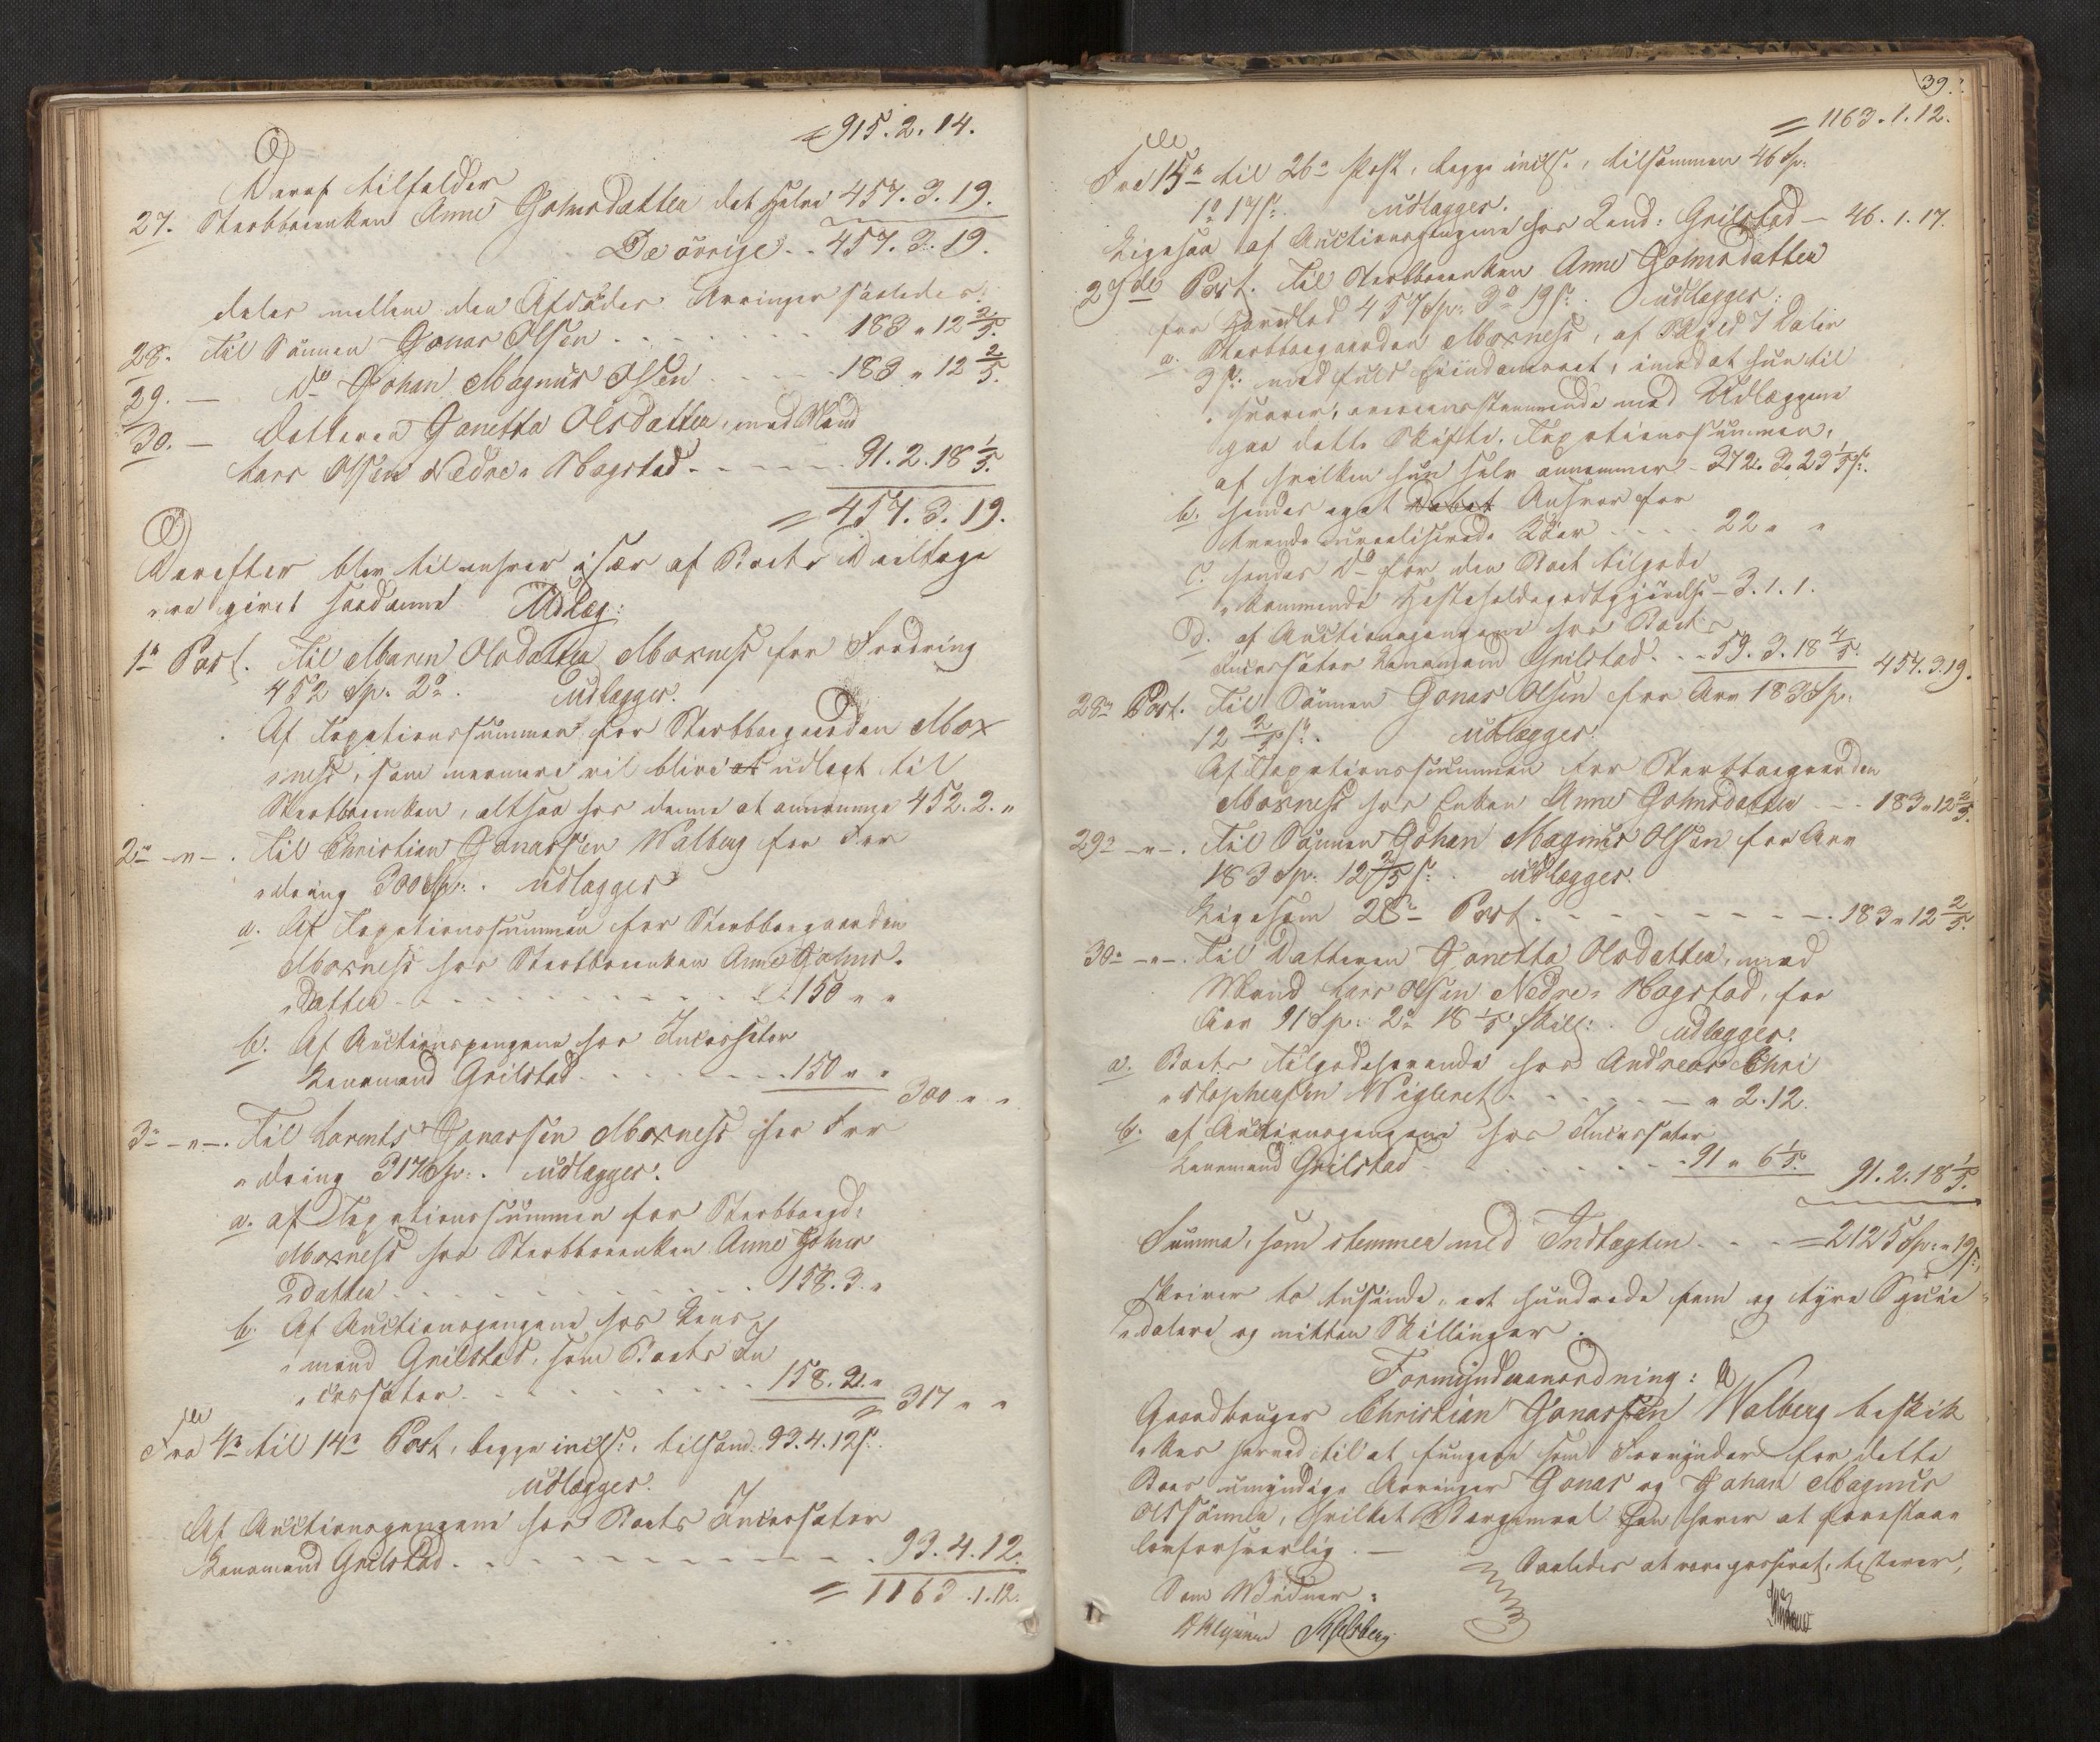 = 915.2.14.
Deraf tilfalder
27. Sterbboenken Anne Johnsdatter det halve 457.3.19.
De övrige .. 457.3.19.
deles mellem den Afdödes Arvinger saaledes:
28. Til Sönnen Jonas Olsen . . . . . . 183 " 12 2/5.
29. — Do Johan Magnus Olsen . . . . 183 " 12 2/5.
30. — Datteren Janetta Olsdatter, med Mand
Lars Olsen Nedre Magstad . . . . . 91.2.18 1/5.
= 457.3.19.
Derefter blev til enhver især af Boets Deeltage
"re givet saadanne Udlæg:
1e Post. Til Maren Olsdatter Moxness for Fordring
452 Sp. 2o. udlægges.
Af Taxationssummen for Sterbboegaarden Mox
"ness, som nærmere vil blive at udlagt til
Sterbboenken, altsaa hos denne at annamme 452.2. "
2e — " — . Til Christian Jonassen Walberg for For
"dring 300 Sp: . udlægges
a. Af Taxationssummen for Sterbboegaarden
Moxness hos Sterbboenken Anne Johns-
"datter . . . . . . . . . 150 " "
b. Af Auctionspengene hos Incassator
Lensmand Grilstad . . . . . . 150 " "
300 " "
3e — " — . Til Lorents Jonassen Moxness for For
"dring 317 Sp: . udlægges:
a. af Taxationssummen for Sterbboegd:
Moxness hos Sterbboenken Anne Johns
"datter . . . . . . . . . 158.3. "
b. Af Auctionspengene hos Lens
"mand Grilstad, som Boets In
"cassator . . . . . . . . 158.2. "
= 317 " "
Fra 4e til 14e Post, begge incls:, tilsam: 93.4.12 s.
udlægges.
Af Auctionspengene hos Boets Incassator
Lensmand Grilstad . . . . . . . . . 93.4.12.
= 1163.1.12.
39.
= 1163.1.12.
Fra 15e til 26e Post, begge incls., tilsammen 46 Sp:
1o 17 s: udlægges.
Ligesaa af Auctionspengene hos Lend: Grilstad — 46.1.17.
27de Post. Til Sterbboenken Anne Johnsdatter
for Hovedlod 457 Sp: 3o 19 s: udlægges:
a. Sterbboegaarden Moxness, af Skyld 7 Daler
3 s: med fuld Eiendomsret, imod at hun til
svarer, overensstemmende med Udlæggene
paa dette Skifte, Taxationssummen,
af hvilken hun selv annammer - 372.3.23 1/5 s:.
b. hendes eget Debet Ansvar for
trende urealiserede Köer . . . . 22 " "
c. hendes Do for den Boet tilgode
"kommende Hesteholdsgodtgjörelse - 3.1.1.
D. af Auctionspengene hos Boets
Incassator Lensmand Grilstad . . . 59.3.18 4/5.
457.3.19.
28e Post. Til Sönnen Jonas Olsen for Arv 183 Sp:
12 2/5 s: . udlægges:
Af Taxationssummen for Sterbboegaarden
Moxness hos Enken Anne Johnsdatter - - - 183 " 12 2/5.
29e — " — . Til Sönnen Johan Magnus Olsen for Arv
183 Sp. 12 2/5 s: . udlægges:
Ligesom 28e Post . . . . . . . 183 " 12 2/5.
30e — " — . Til Datteren Janetta Olsdatter, med
Mand Lars Olsen Nedre Magstad, for
Arv 91 Sp: 2o 18 1/5 skill: . udlægges:
a. Boets Tilgodehavende hos Andreas Chri
"stophersen Wigleret . . . . . . " 2.12.
b. af Auctionspengene hos Incassator
Lensmand Grilstad . . . . . . . 91 " 6 1/5.
91.2.18 1/5.
Summa, som stemmer med Indtægten . . . = 2125 Sp: " 19 s:,
skriver to tusinde, et hundrede fem og tyve Specie
"dalere og nitten Skillinger.
Formynderanordning:
Gaardbruger Christian Jonassen Walberg beskik
"kes herved til at fungere som Formynder for dette
Boes umyndige Arvinger Jonas og Johan Magnus
Olssönner, hvilket Værgemaal han haver at forestaae
lovforsvarlig. —
Saaledes at være passeret, testerer,
Som Vidner:
Kjelsberg